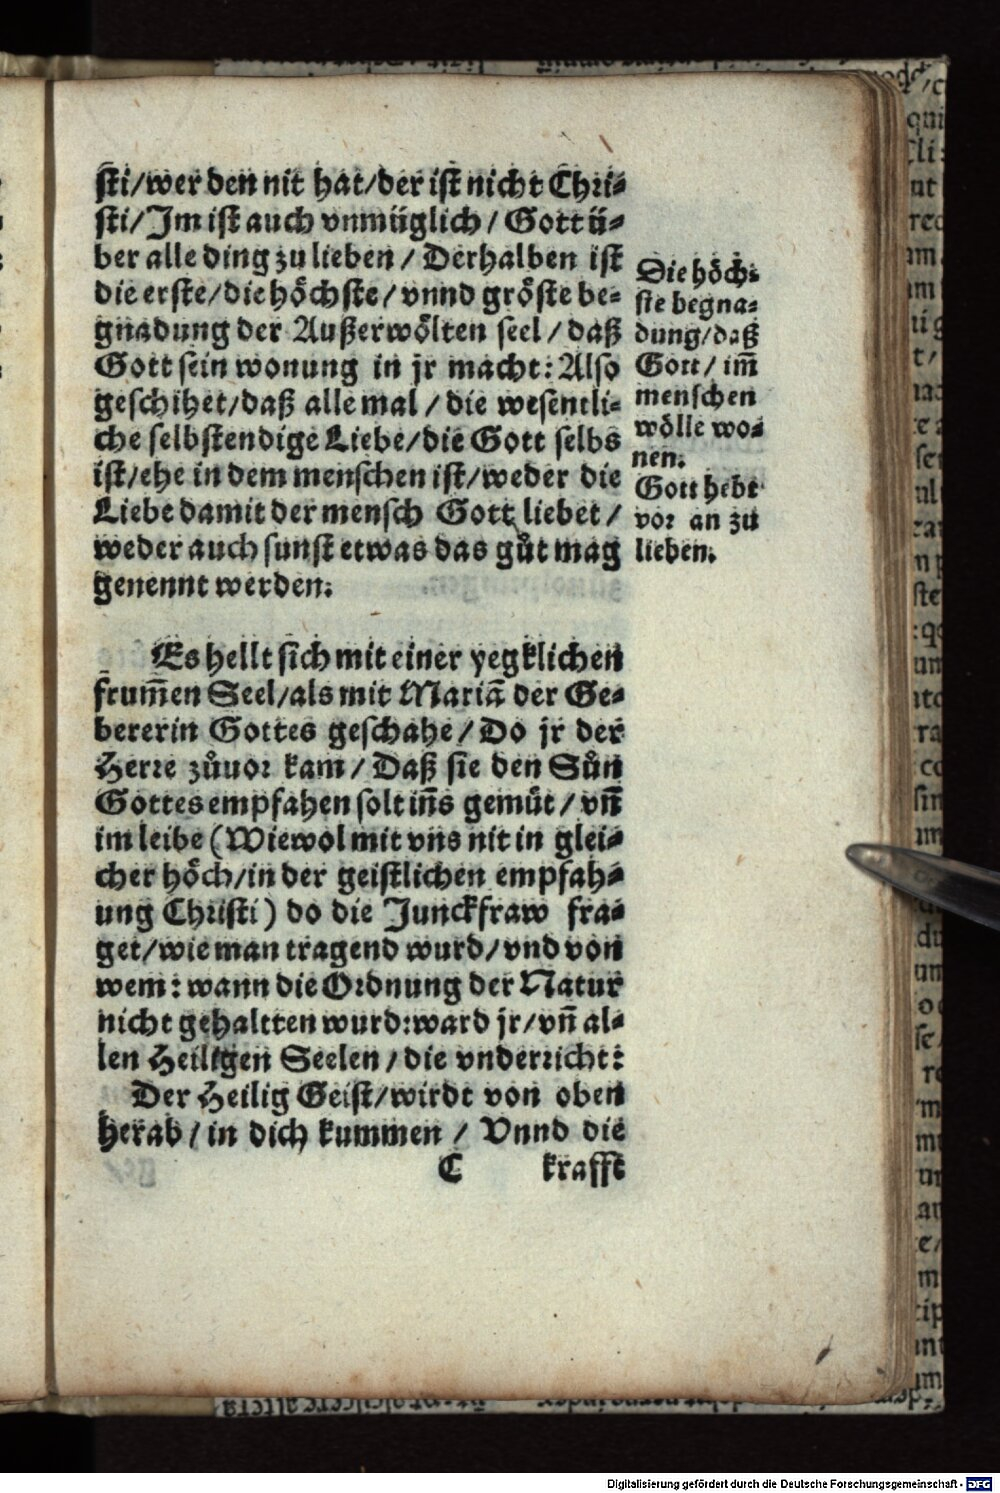 sti/wer den nit hat/der ist nicht Chri⸗
sti/Im ist auch vnmüglich/Gott ü⸗
ber alle ding zu lieben/Derhalben ist
die erste/die höchste/vnnd gröste be⸗
gnadung der Außerwölten seel/daß
Gott sein wonung in jr macht: Also
geschihet/daß alle mal/die wesentli⸗
che selbstendige Liebe/die Gott selbs
ist/ehe in dem menschen ist/weder die
Liebe damit der mensch Gott liebet/
weder auch sunst etwas das gůt mag
genennt werden.
Die höch⸗
ste begna⸗
dung/daß
Gott/im̄
menschen
wölle wo⸗
nen.
Gott hebt
vor an zů
lieben.
Es hellt sich mit einer yegklichen
frum̄en Seel/als mit Mariā der Ge⸗
bererin Gottes geschahe/Do jr der
Herre zůuor kam/Daß sie den Sůn
Gottes empfahen solt in̄s gemüt/vn̄
im leibe (Wiewol mit vns nit in glei⸗
cher höch/in der geistlichen empfah⸗
ung Christi) do die Junckfraw fra⸗
get/wie man tragend wurd/vnd von
wem: wann die Ordnung der Natur
nicht gehaltten wurd: ward jr/vn̄ al⸗
len Heiligen Seelen/die vnderricht:
Der Heilig Geist/wirdt von oben
herab/in dich kummen/Vnnd die
C krafft
Digitalisierung gefördert durch die Deutsche Forschungsgemeinschaft - DFG